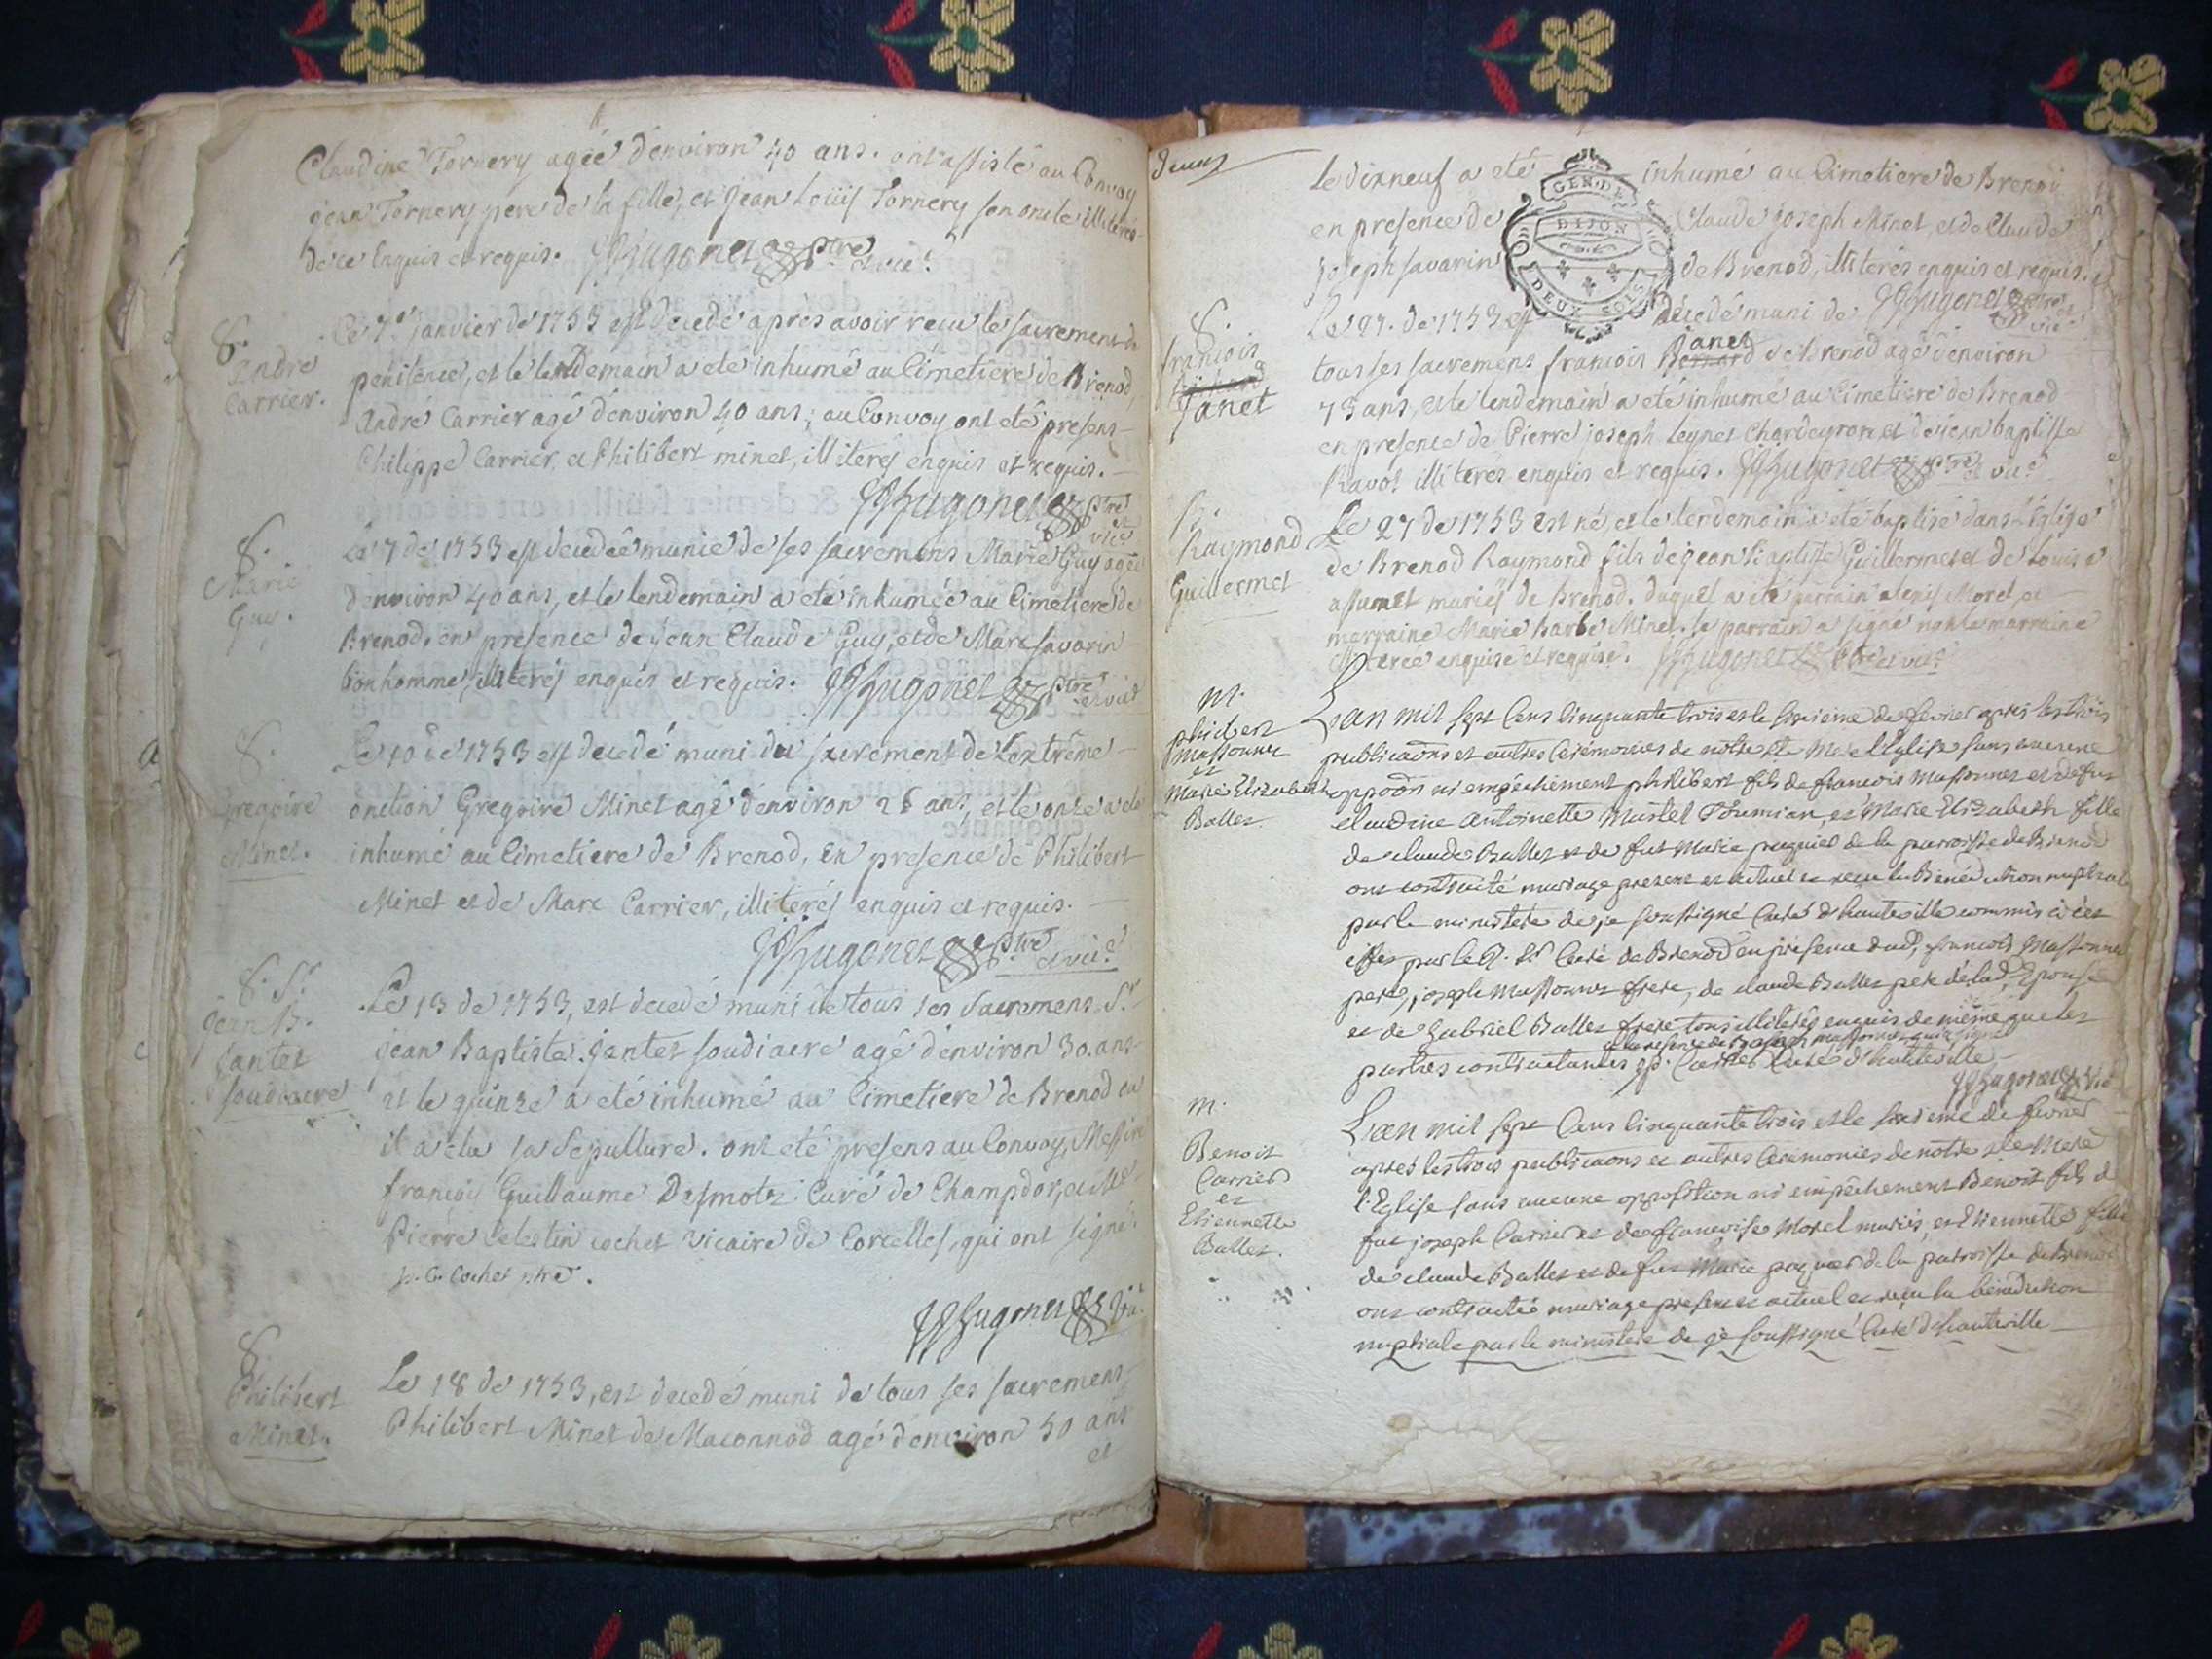 Claudine Tornery agée d'environ 40 ans. ont assisté au Convoy
jean Tornery pere de la fille, et jean Loüis Tornery son oncle illiterés
de ce Enquis et requis. JJHugonet ptre et vic.
S.
Andre
Carrier.
Le 7e janvier de 1753 est decedé apres avoir recu le sacrement de
penitence, et le lendemain a eté inhumé au Cimetiere de Brenod,
André Carrier agé d'environ 40 ans; au Convoy ont eté presens
Philippe Carrier et Philibert minet, illiterés enquis et requis.
JJHugonet ptre et vic.
S.
Marie
Guy.
Le 7 de 1753 est decedée munie de ses sacremens Marie Guy agée
d'environ 40 ans, et le lendemain a eté inhumée au Cimetiere de
Brenod, en presence de jean Claude Guy, et de Marc savarin
bonhomme, illiterés enquis et requis. JJHugonet ptre et vic.
S.
Gregoire
Minet.
Le 10 de 1753 est decedé muni du sacrement de l'extrême
onction Gregoire Minet agé d'environ ans, et le onze a eté
inhumé au Cimetiere de Brenod, en presence de Philibert
Minet et de Marc Carrier, illiterés enquis et requis.
JJHugonet ptre et vic.
S. Sr
jean B.
jantet
soudiacre
Le 13 de 1753, est decedé muni de tous ses Sacremens Sr
jean Baptiste jantet soudiacre agé d'environ 30. ans
et le quinze a eté inhumé au Cimetiere de Brenod ou
il a elu sa Sepulture. ont eté presens au Convoy, Messire
françois Guillaume Desmotz Curé de Champdor, et Mre
Pierre Celestin cochet vicaire de Corcelles, qui ont signé.
p. C. Cochet ptre.
JJHugonet vic.
S.
Philibert
Minet.
Le 18 de 1753, est decedé muni de tous ses sacremens
Philibert Minet de Maconnod agé d'environ 50 ans
et
deux
Le dixneuf a eté inhumé au Cimetiere de Brenod
en presence de Claude joseph Minet, et de Claude
joseph savarin de Brenod, illiterés enquis et requis.
GEN. DE
DIJON
DEUX SOLS
JJHugonet ptre et vic.
S.
francois
Janet
Le 27. de 1753 est decedé muni de
janet
tous ses sacremens francois Bernard de Brenod agé d'environ
73 ans, et le lendemain a eté inhumé au Cimetiere de Brenod
en presence de Pierre joseph Leynet Chardeyron et de jean baptiste
Ravot illiterés enquis et requis. JJHugonet ptre et vic.
b.
Raymond
Guillermet
Le 27 de 1753 est né, et le lendemain a eté baptisé dans l'Eglise
de Brenod Raymond fils de jean Baptiste Guillermet et de Louise
assumet mariés de Brenod. duquel a eté parrain alexis Morel, et
marraine Marie barbe Minet. le parrain a signé non la marraine
illiterée enquise et requise. JJHugonet ptre et vic.
M.
philibert
Massonnet
et
Marie Elizabeth
Ballet
L'an mil sept Cens Cinquante trois et le seizieme de fevrier apres les trois
publicaons et autres Ceremonies de notre ste Mere l'Eglise sans aucune
oppoon ni empêchement philibert fils de francois Massonnet et de fut
claudine antoinette Martel et Marie Elizabeth fille
de claude Ballet et de fut Marie de la parroisse de Brenod
ont contracté mariage present et actuel et recu la Bénédiction nuptiale
par le ministère de je soussigné Curé d'hauteville commis à cet
effet par le Sr Curé de Brenod en présence dud. francois Massonnet
pere, joseph Massonnet frere, de claude Ballet pere de lad. Epouse
et de Gabriel Ballet frere tous illiterés enquis de même que les
parties contractantes Curé d'hauteville
JJHugonet vic
M.
Benoit
Carrier
et
Etiennette
Ballet.
L'an mil sept Cens Cinquante trois et le seizieme de fevrier
après les trois publicaons et autres Ceremonies de notre ste Mere
l'Eglise sans aucune opposition ni empêchement Benoit fils de
fut joseph Carrier et de francoise Morel mariés, et Etiennette fille
de claude Ballet et de fut Marie de la parroisse de Brenod
ont contracté mariage present et actuel et reçu la bénédiction
nuptiale par le ministère de je soussigné Curé d'hauteville